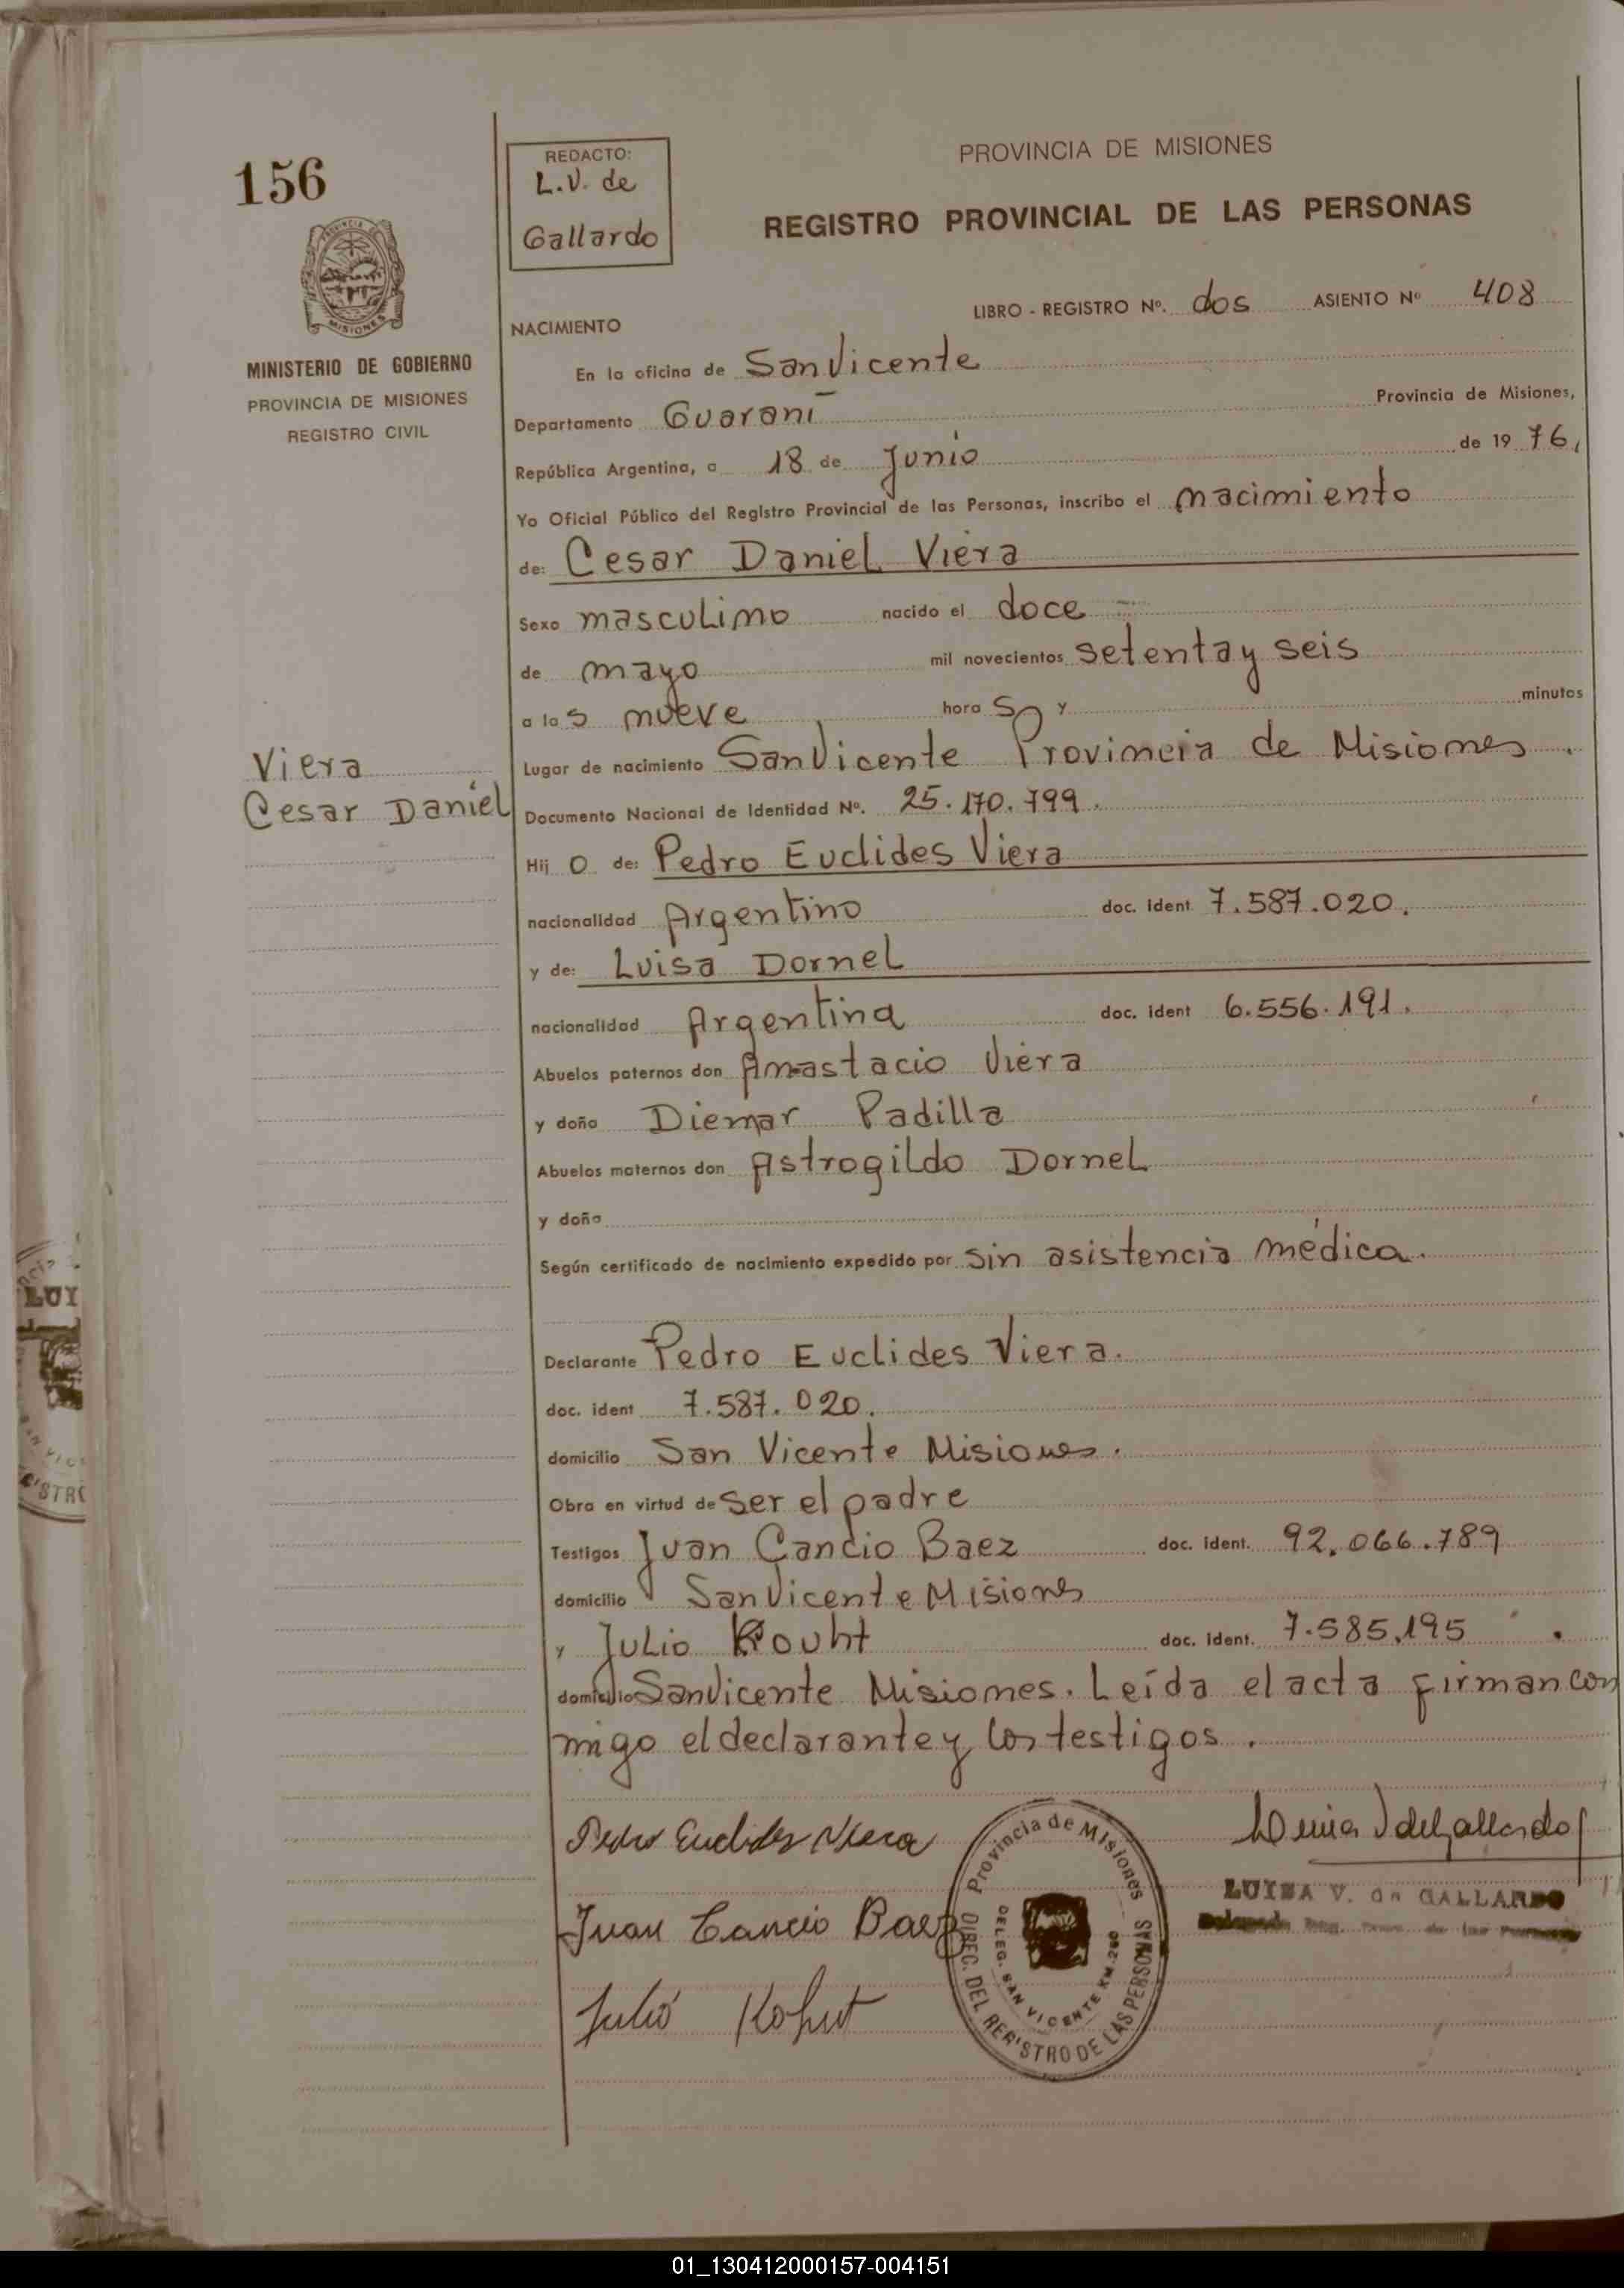 156
REDACTO:
L.V. de
Gallardo
PROVINCIA DE MISIONES
REGISTRO PROVINCIAL DE LAS PERSONAS
MISIONES
MINISTERIO DE GOBIERNO
PROVINCIA DE MISIONES
REGISTRO CIVIL
LIBRO - REGISTRO Nº. dos ASIENTO Nº 408
NACIMIENTO
En la oficina de San Vicente
Departamento Guaraní Provincia de Misiones,
República Argentina, a 18 de Junio de 19 76,
Yo Oficial Público del Registro Provincial de las Personas, inscribo el nacimiento
de: Cesar Daniel Viera
Sexo masculino nacido el doce -
de mayo mil novecientos setenta y seis
a las nueve horas y minutos
Lugar de nacimiento San Vicente Provincia de Misiones.
Viera
Cesar Daniel
Documento Nacional de Identidad Nº. 25.170.799.
Hijo de: Pedro Euclides Viera
nacionalidad Argentino doc. ident 7.587.020.
y de: Luisa Dornel
nacionalidad Argentina doc. ident 6.556.191.
Abuelos paternos don Anastacio Viera
y doña Diemar Padilla
Abuelos maternos don Astrogildo Dornel
y doña
Según certificado de nacimiento expedido por sin asistencia médica.
Declarante Pedro Euclides Viera.
doc. ident 7.587.020.
domicilio San Vicente Misiones.
Obra en virtud de ser el padre
Testigos Juan Cancio Baez doc. ident. 92.066.789
domicilio San Vicente Misiones
y Julio Kouht doc. ident. 7.585.195.
domicilio San Vicente Misiones. Leída el acta firman con
migo el declarante y los testigos.
Pedro Euclides Viera
Juan Cancio Baez
Julio Kohut
Provincia de Misiones
DIREC. DEL REGISTRO DE LAS PERSONAS
DELEG. SAN VICENTE KM. 260
Luisa V de Gallardo
LUISA V. de GALLARDO
LUI
01_130412000157-004151